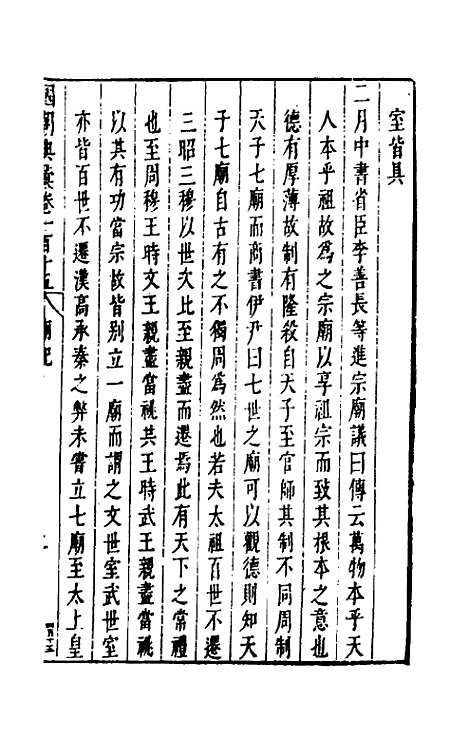 室皆具
二月中書省臣李善長等進宗廟議曰傳云萬物本乎天
人本乎祖故爲之宗廟以享祖宗而致其根本之意也
德有厚薄故制有隆殺自天子至官師其制不同周制
天子七廟而商書伊尹曰七世之廟可以觀德則知天
子七廟自古有之不獨周爲然也若夫太祖百世不遷
三昭三穆以世次比至親盡而遷焉此有天下之常禮
也至周穆王時文王親盡當祧共王時武王親盡當祧
以其有功當宗故皆别立一廟而謂之文世室武世室
亦皆百世不遷漢高承秦之弊未嘗立七廟至太上皇
國朝典彙卷一百十五 廟祀